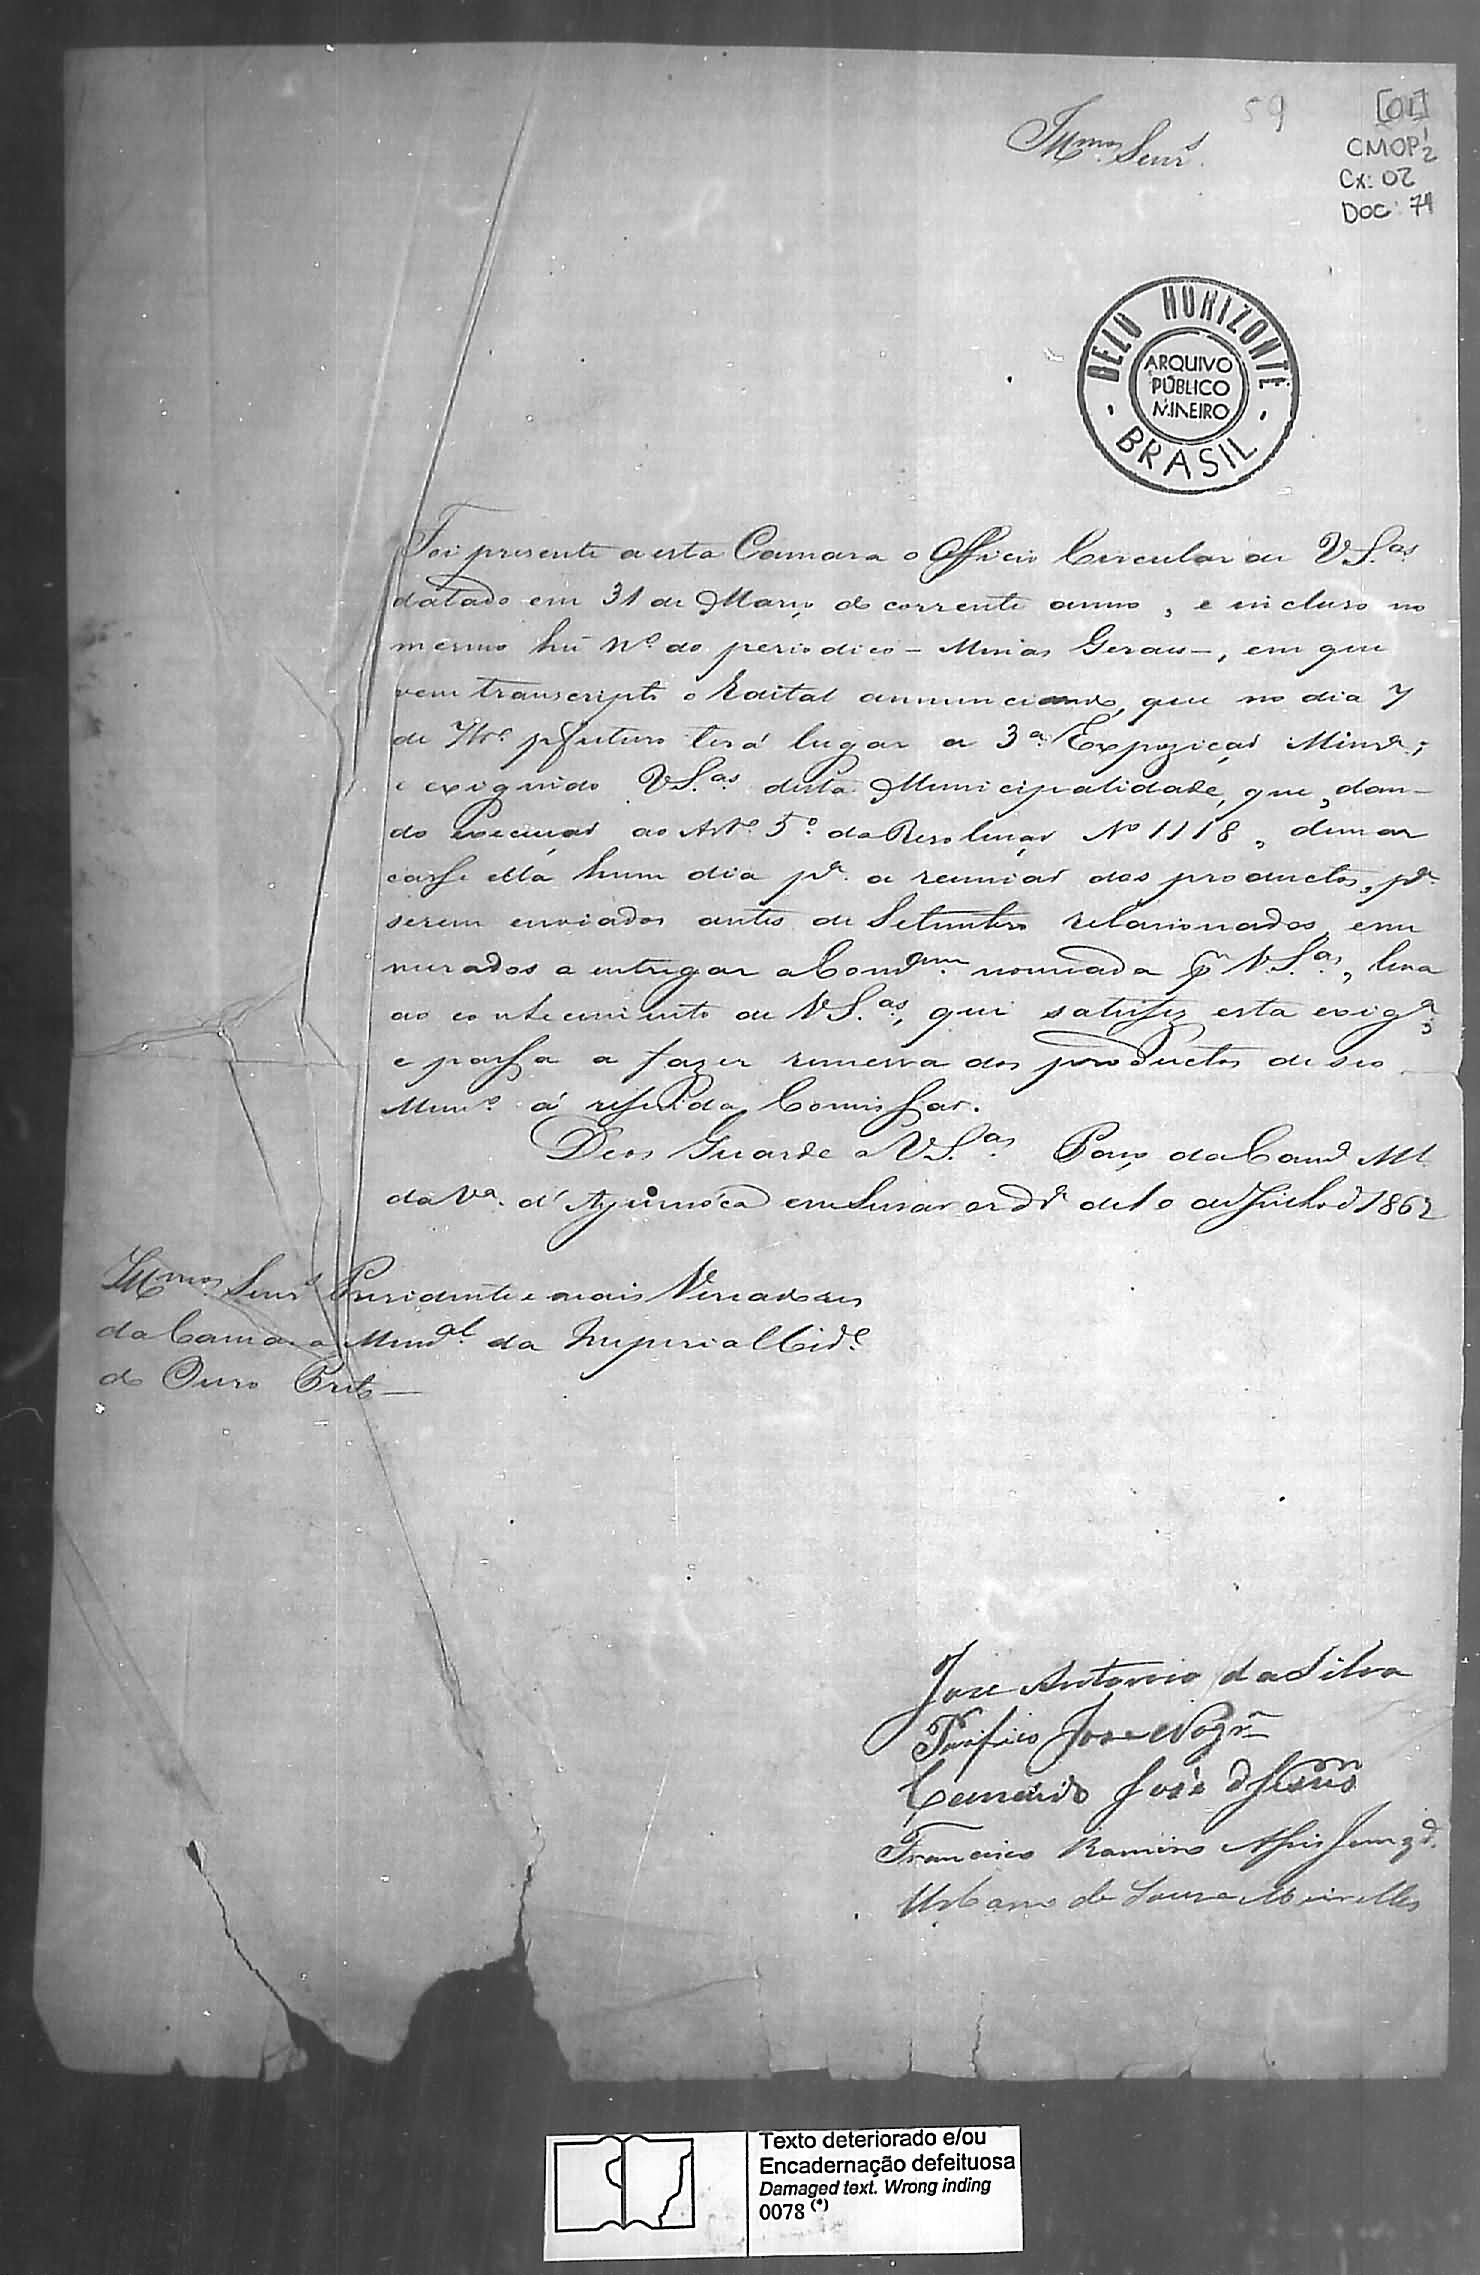 59
[01]
CMOP ½
Cx: 02
Doc: 74
Illmos. Senrs.
BELO HORIZONTE
ARQUIVO
PÚBLICO
MINEIRO
BRASIL
Foi presente a esta Camara o Officio Circular de V.S.as
datado em 31 de Março do corrente anno, e incluso no
mesmo hũ No. do periodico - Minas Geraes -, em que
vem transcripto o Edital annunciando, que no dia 7
de 7bro. pfuturo terá lugar a 3a. Expozição Minra.;
e exigindo V.S.as. desta Municipalidade, que, dan-
do execução ao Arto. 5o. da Resolução No 1118, demar
casse ella hum dia pa. a reunião dos productos, pa.
serem enviados antes de Setembro relacionados, enu
merados a entregar a Comam. nomeada pr V.S.as, leva
ao conhecimento de V.S.as, que satisfez esta exiga.,
e passa a fazer remessa dos productos de seo
Muno. á referida Comissão.
Deos Guarde a V.S.as. Paço da Camra. Ml.
da Va. d'Ayuruóca em Sessão ordra. de 10 de Julho d 1862
Illmos. Senrs. Presidente e mais Vereadores
da Camara Munal. da Imperial Cide.
do Ouro Preto
José Antonio da Silva
Pacifico José Nogra
José d
Francisco Ramiro
Urbano de Souza Meirelles
Texto deteriorado e/ou
Encadernação defeituosa
Damaged text. Wrong inding
0078 (*)